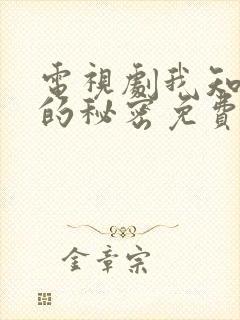 電視劇我知
的秘密免費
金章宗